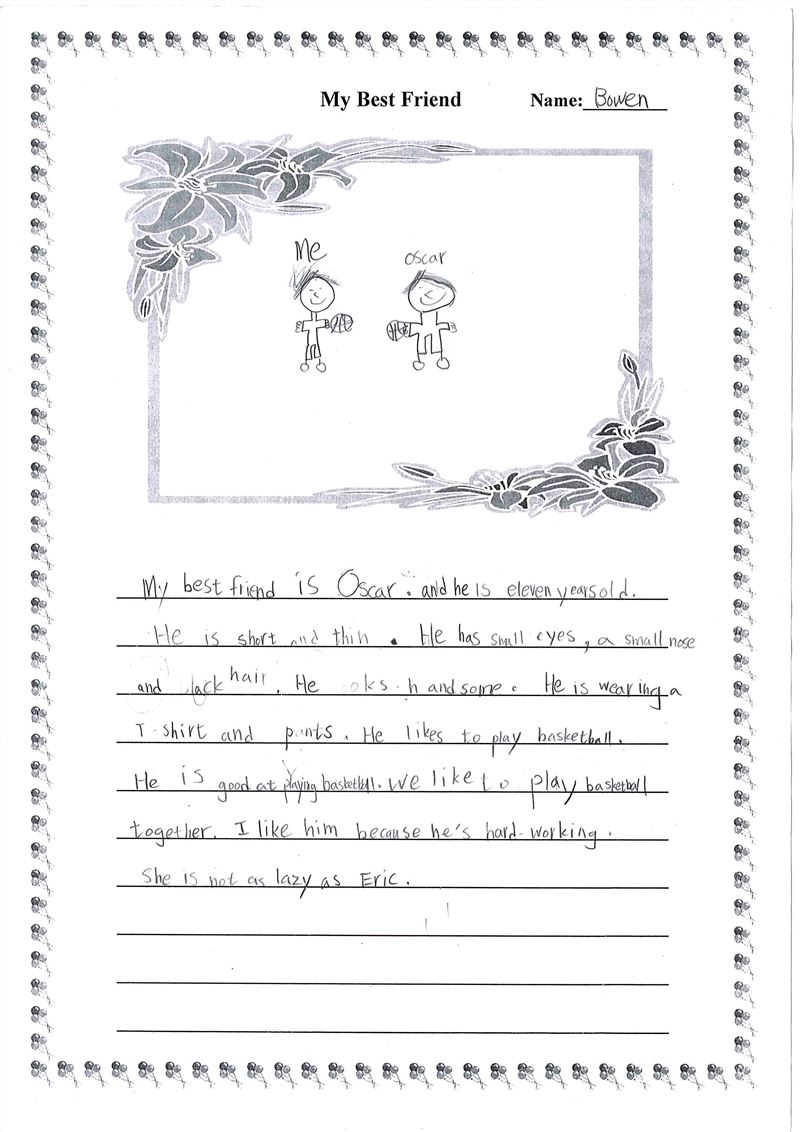 My Best Friend
Name: Bowen
Me
oscar
My best friend is Oscar. and he is eleven years old.
He is short and thin. He has small eyes, a small nose
and hair. He handsome. He is wearing a
T-shirt and pants. He likes to play basketball.
He is good at playing basketball. We like to play basketball
together. I like him because he's hard-working.
She is not as lazy as Eric.